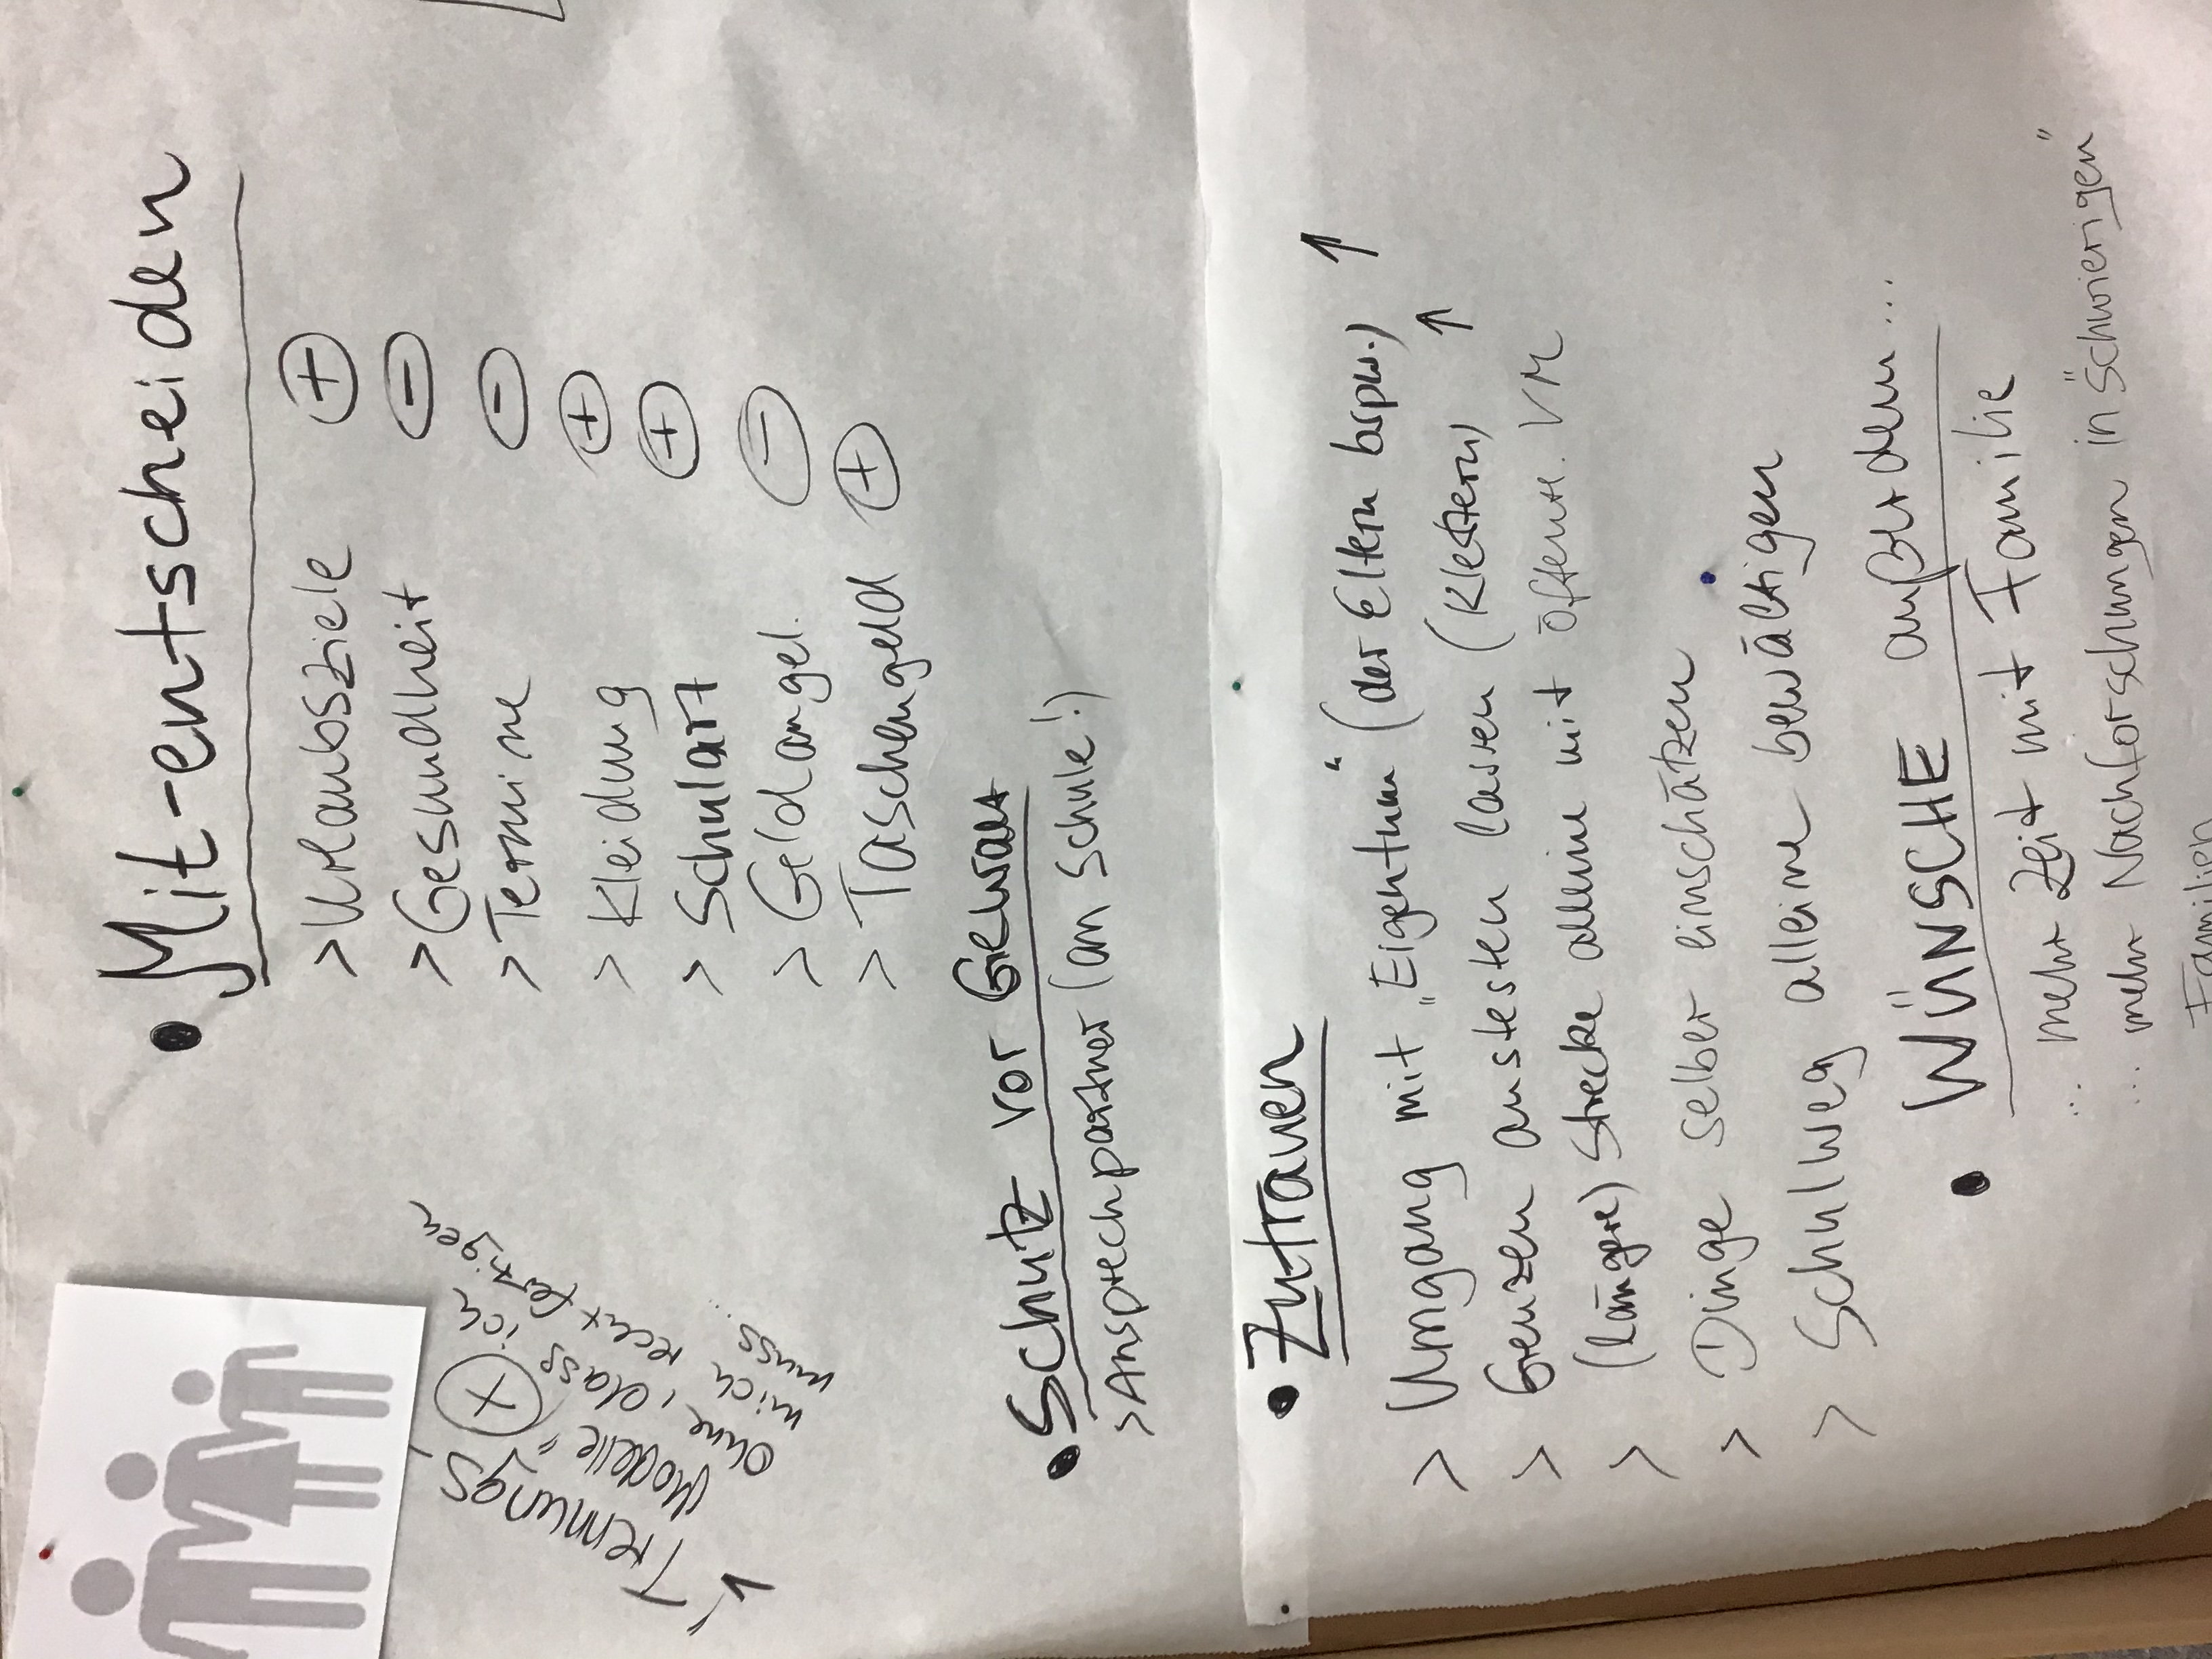 • Mit-entscheiden
> Urlaubsziele ⊕
> Gesundheit ⊖
> Termine ⊖
> Kleidung ⊕
> Schulart ⊕
> Geldangel. ⊖
> Taschengeld ⊕
> „Trennungs- ⊕
Modelle“, dass ich
ohne
mich rechtfertigen
muss...
• Schutz vor Gewalt
> Ansprechpartner (an Schule!)
• Zutrauen
> Umgang mit „Eigentum“ (der Eltern bspw.) ↑
> Grenzen austesten lassen (Klettern) ↑
> (längere) Strecke alleine mit öffentl. VM
> Dinge selber einschätzen
> Schulweg alleine bewältigen
• WÜNSCHE außerdem...
... mehr Zeit mit Familie
... mehr Nachforschungen in "schwierigen"
Familien